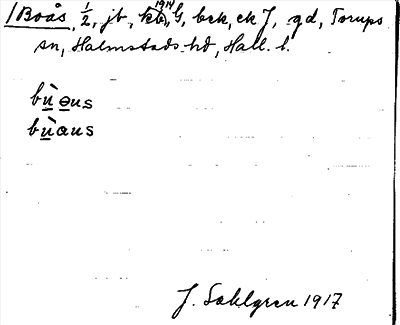 /Boås, 1/2, jb, kb, 1914 G, bck, ck J, gd, Torups
sn, Halmstads hd, Hall. l.
bùɵus
bùaus
J. Sahlgren 1917